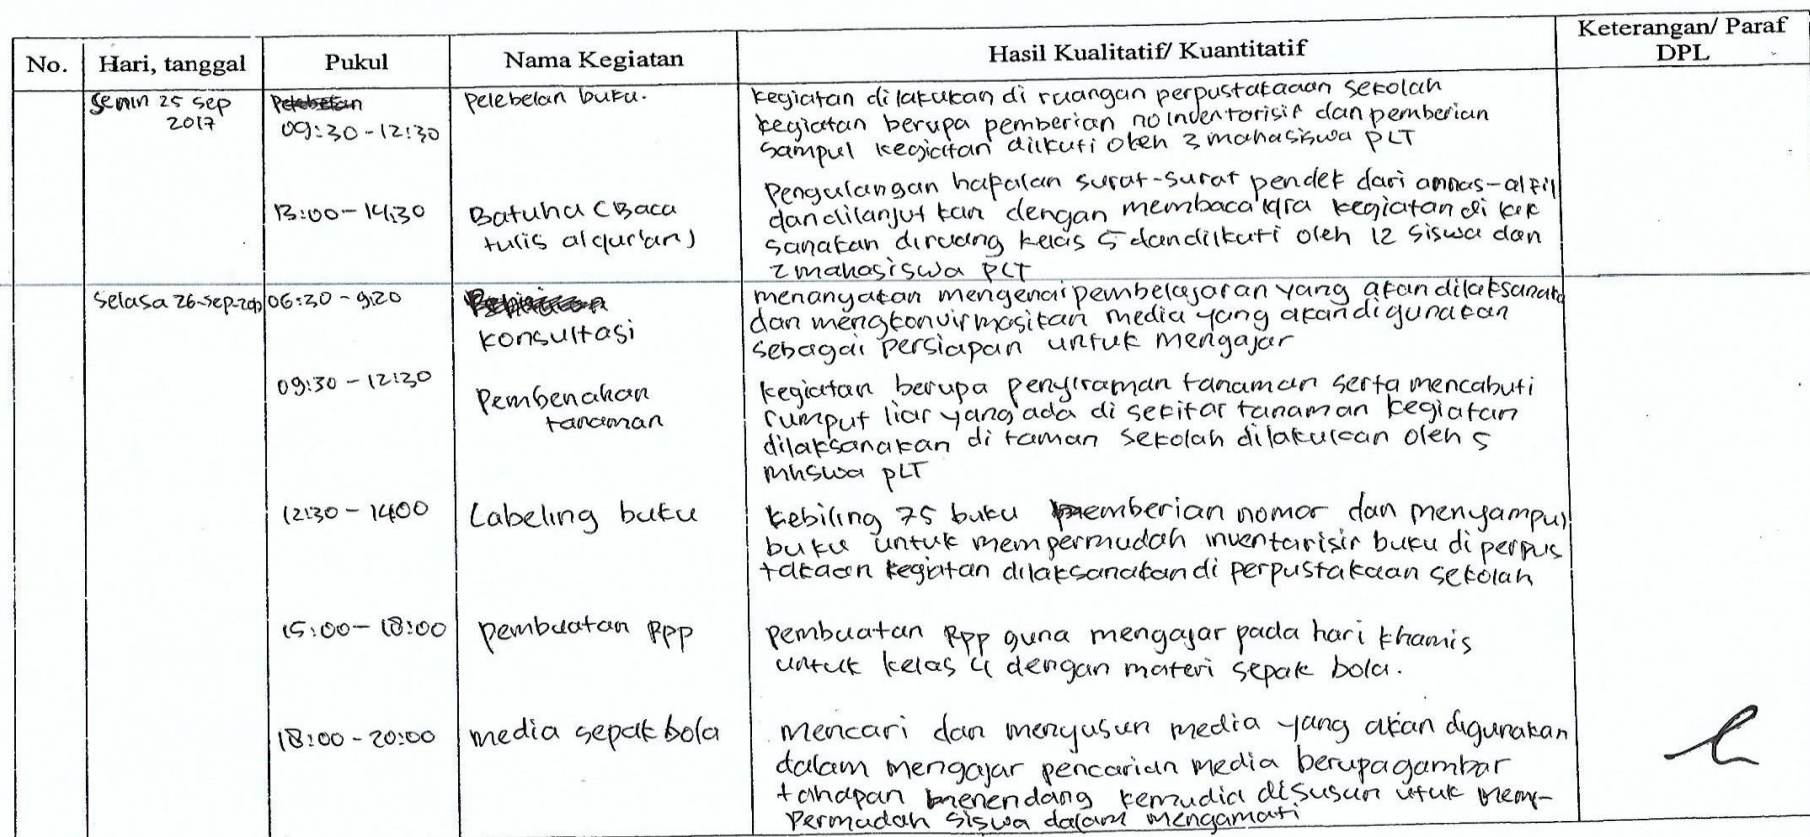 No. Hari, tanggal Pukul Nama Kegiatan Hasil Kualitatif/ Kuantitatif Keterangan/ Paraf DPL
Senin 25 sep
2017
09:30-12:30
Pelebelan buku.
kegiatan dilakukan di ruangan perpustakaaan sekolah
kegiatan berupa pemberian no inventorisir dan pemberian
sampul kegiatan diikuti oleh 3 mahasiswa PLT
13:00-14:30
Batuha (Baca
tulis alqur'an)
Pengulangan hafalan surat-surat pendek dari annas-alfil
dan dilanjutkan dengan membaca iqra kegiatan di
sanakan diruang kelas 5 dan diikuti oleh 12 siswa dan
2 mahasiswa PLT
Selasa 26-sep-2017
06:30-9:20
konsultasi
menanyakan mengenai pembelajaran yang akan dilaksanakan
dan mengkonvirmasikan media yang akan digunakan
sebagai persiapan untuk mengajar
09:30-12:30
Pembenahan
tanaman
kegiatan berupa penyiraman tanaman serta mencabuti
rumput liar yang ada di sekitar tanaman kegiatan
dilaksanakan di taman sekolah dilakukan oleh 5
mhswa PLT
12:30-1400
Labeling buku
kebiling 75 buku pemberian nomor dan menyampul
buku untuk mempermudah inventarisir buku di perpus
takaan kegiatan dilaksanakan di perpustakaan sekolah
15:00-18:00
pembuatan RPP
pembuatan RPP guna mengajar pada hari khamis
untuk kelas 4 dengan materi sepak bola.
18:00-20:00
media sepak bola
mencari dan menyusun media yang akan digunakan
dalam mengajar pencarian media berupa gambar
tahapan menendang kemudia disusun utuk mem-
permudah siswa dalam mengamati